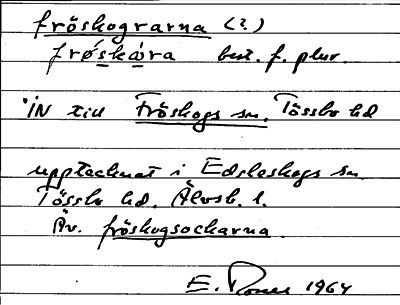 fröskograrna (?)
frøskàra best. f. plur.
IN till Fröskogs sn. Tössbo hd
upptecknat i Edsleskogs sn.
Tössbo hd. Älvsb. l.
Äv. fröskogsockarna.
E. 1964